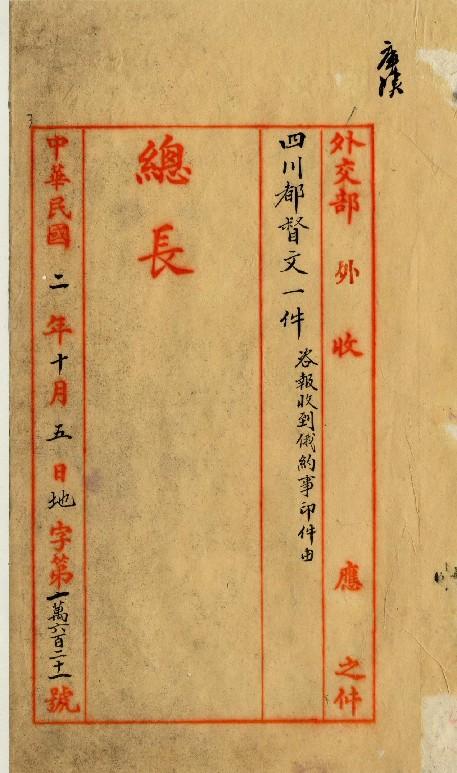 外交部外收應之件
四川都督文一件 咨報收到俄約事印件由
總長
中華民國二年十月五日地字第一萬六百二十一號